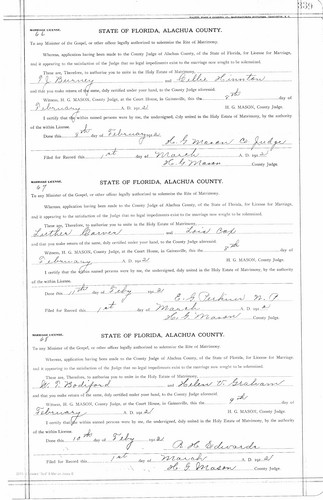 339
MARRIAGE LICENSE.
STATE OF FLORIDA, ALACHUA COUNTY.
To any Minister of the Gospel, or other officer legally authorized to solemnize the Rite of Matrimony:
Whereas, application having been made to the County Judge of Alachua County, of the State of Florida, for License for Marriage,
and it appearing to the satisfaction of the Judge that no legal impediments exist to the marriage now sought to be solemnized:
These are, Therefore, to authorize you to unite in the Holy Estate of Matrimony,
T J Burney and Hinston
and that you make return of the same, duly certified under your hand, to the County Judge aforesaid.
Witness, H. G. MASON, County Judge, at the Court House, in Gainesville, this day of
February A. D. H. G. MASON, County Judge.
I certify that the within named persons were by me, the undersigned, duly united in the Holy Estate of Matrimony, by the authority
of the within License.
Done this 8th day of February
H. G. Mason Co Judge
Filed for Record this 1st day of March A. D.
H G Mason
MARRIAGE LICENSE.
67
STATE OF FLORIDA, ALACHUA COUNTY.
To any Minister of the Gospel, or other officer legally authorized to solemnize the Rite of Matrimony:
Whereas, application having been made to the County Judge of Alachua County, of the State of Florida, for License for Marriage,
and it appearing to the satisfaction of the Judge that no legal impediments exist to the marriage now sought to be solemnized:
These are, Therefore, to authorize you to unite in the Holy Estate of Matrimony,
Luther and Lois Cox
and that you make return of the same, duly certified under your hand, to the County Judge aforesaid.
Witness, H. G. MASON, County Judge, at the Court House, in Gainesville, this day of
February A. D. H. G. MASON, County Judge.
I certify that the within named persons were by me, the undersigned, duly united in the Holy Estate of Matrimony, by the authority
of the within License.
Done this 11th day of Feby
E. G. Perkins N. P.
Filed for Record this 1st day of March A. D.
H. G. Mason
MARRIAGE LICENSE.
68
STATE OF FLORIDA, ALACHUA COUNTY.
To any Minister of the Gospel, or other officer legally authorized to solemnize the Rite of Matrimony:
Whereas, application having been made to the County Judge of Alachua County, of the State of Florida, for License for Marriage,
and it appearing to the satisfaction of the Judge that no legal impediments exist to the marriage now sought to be solemnized:
These are, Therefore, to authorize you to unite in the Holy Estate of Matrimony,
Bodiford and Helen Graham
and that you make return of the same, duly certified under your hand, to the County Judge aforesaid.
Witness, H. G. MASON, County Judge, at the Court House, in Gainesville, this 9th day of
February A. D. H. G. MASON, County Judge.
I certify that the within named persons were by me, the undersigned, duly united in the Holy Estate of Matrimony, by the authority
of the within License.
Done this 10th day of Feby
R H Edwards
Filed for Record this 1st day of March A. D.
H. G. Mason County Judge